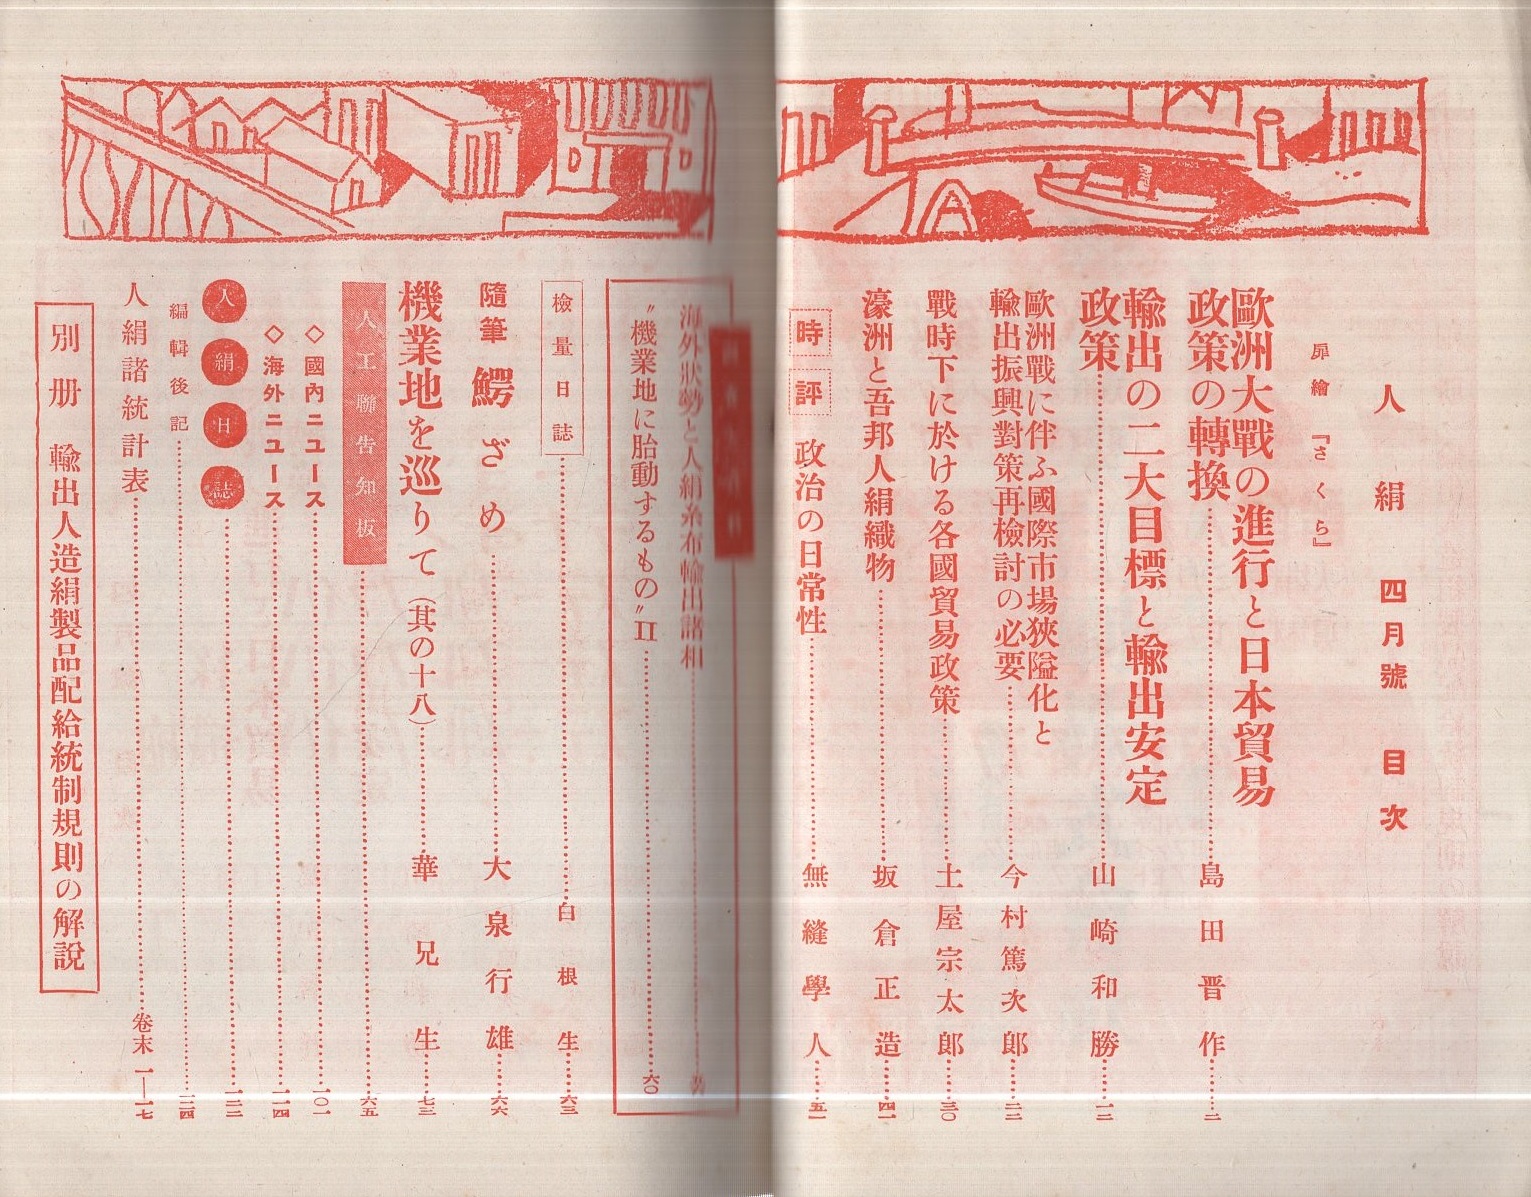 人絹 四月號 目次
扉繪『さくら』
歐洲大戰の進行と日本貿易
政策の轉換……島田晋作……二
輸出の二大目標と輸出安定
政策……山崎和勝……一二
歐洲戰に伴ふ國際市場狹隘化と
輸出振興對策再檢討の必要……今村篤次郎……二二
戰時下に於ける各國貿易政策……土屋宗太郎……三〇
濠洲と吾邦人絹織物……坂倉正造……四一
時評 政治の日常性……無縫學人……五一
海外狀勢と人絹糸布輸出諸相……
〝機業地に胎動するもの〟II……六〇
檢量日誌……白根生……六三
隨筆 鰐ざめ……大泉行雄……六六
機業地を巡りて(其の十八)……華兄生……七三
人工聯告知板……六五
◇國內ニユース……一〇一
◇海外ニユース……一一四
人絹日誌……一二二
編輯後記……一二四
人絹諸統計表……卷末 一—一七
別册 輸出人造絹製品配給統制規則の解說